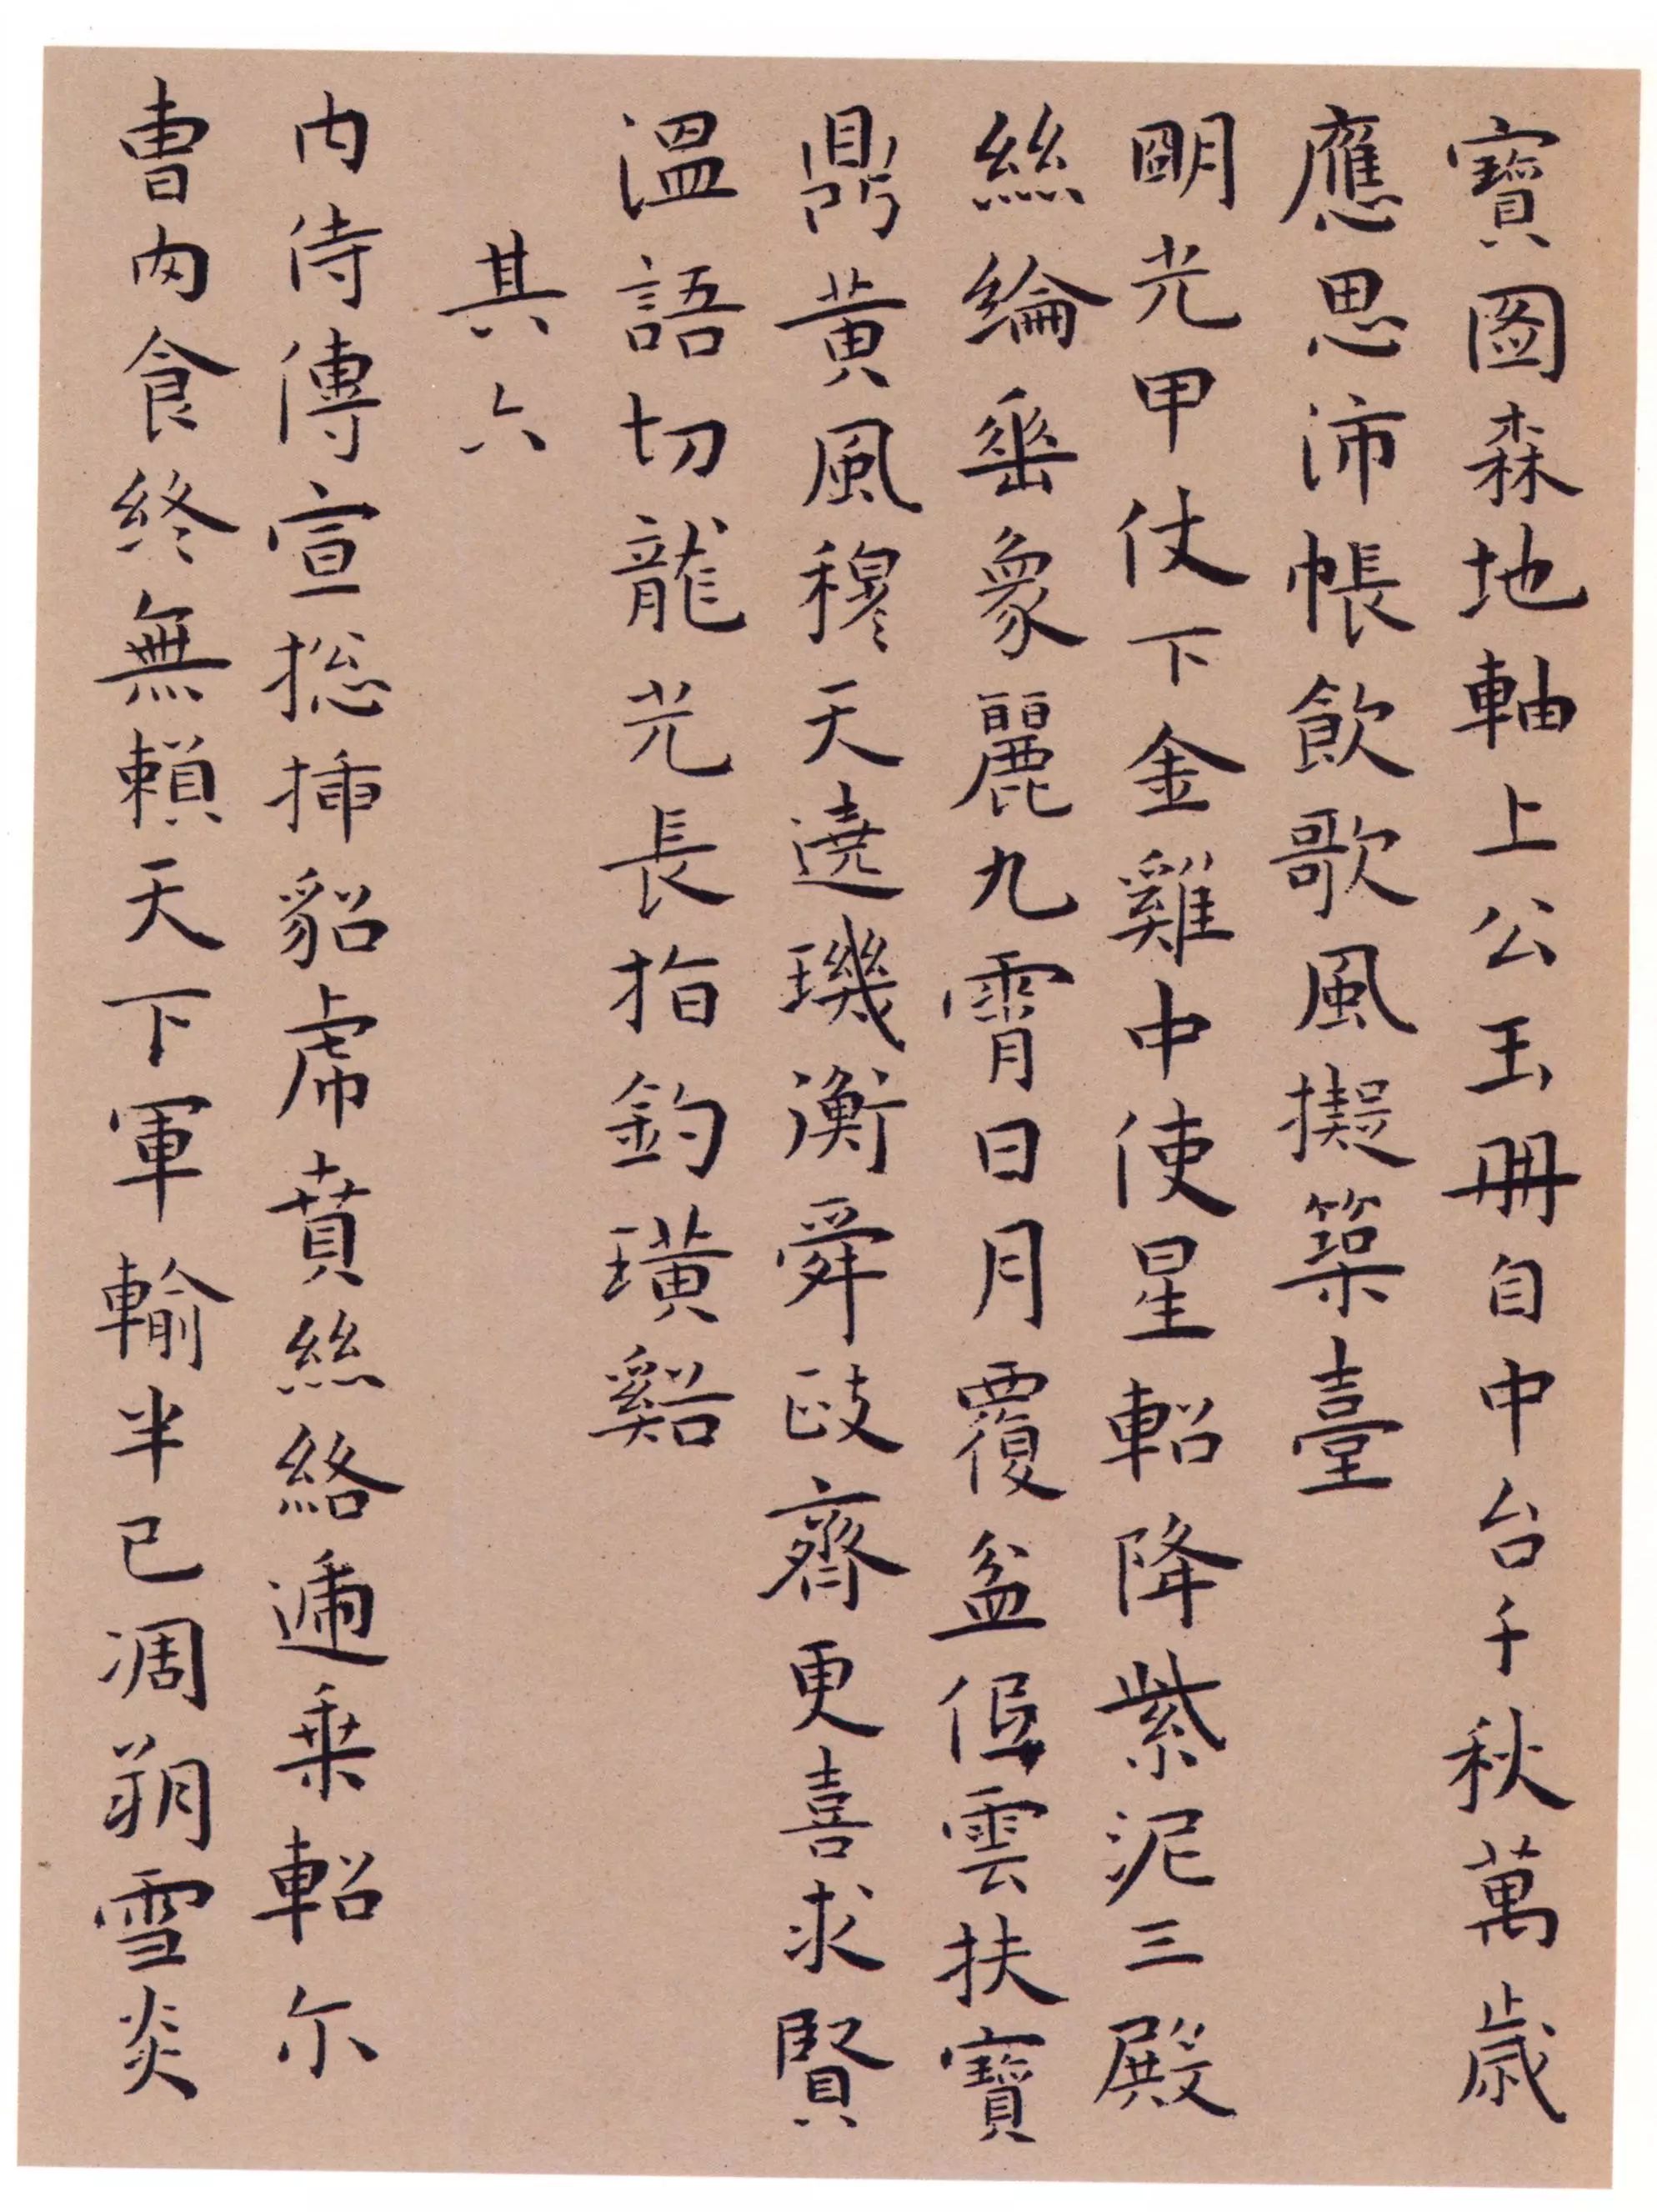 寶圖森地軸上公玉冊自中台千秋萬歲
應思沛帳飲歌風擬築臺
朙光甲仗下金雞中使星軺降紫泥三殿
絲綸垂象麗九霄日月覆盆低雲扶寶
鼎黃風穆天遶璣衡舜政齊更喜求賢
溫語切龍光長指釣璜谿
其六
內侍傳宣摠插貂虎賁絲絡遞乘軺尔
曹肉食終無賴天下軍輸半已凋朔雪炎